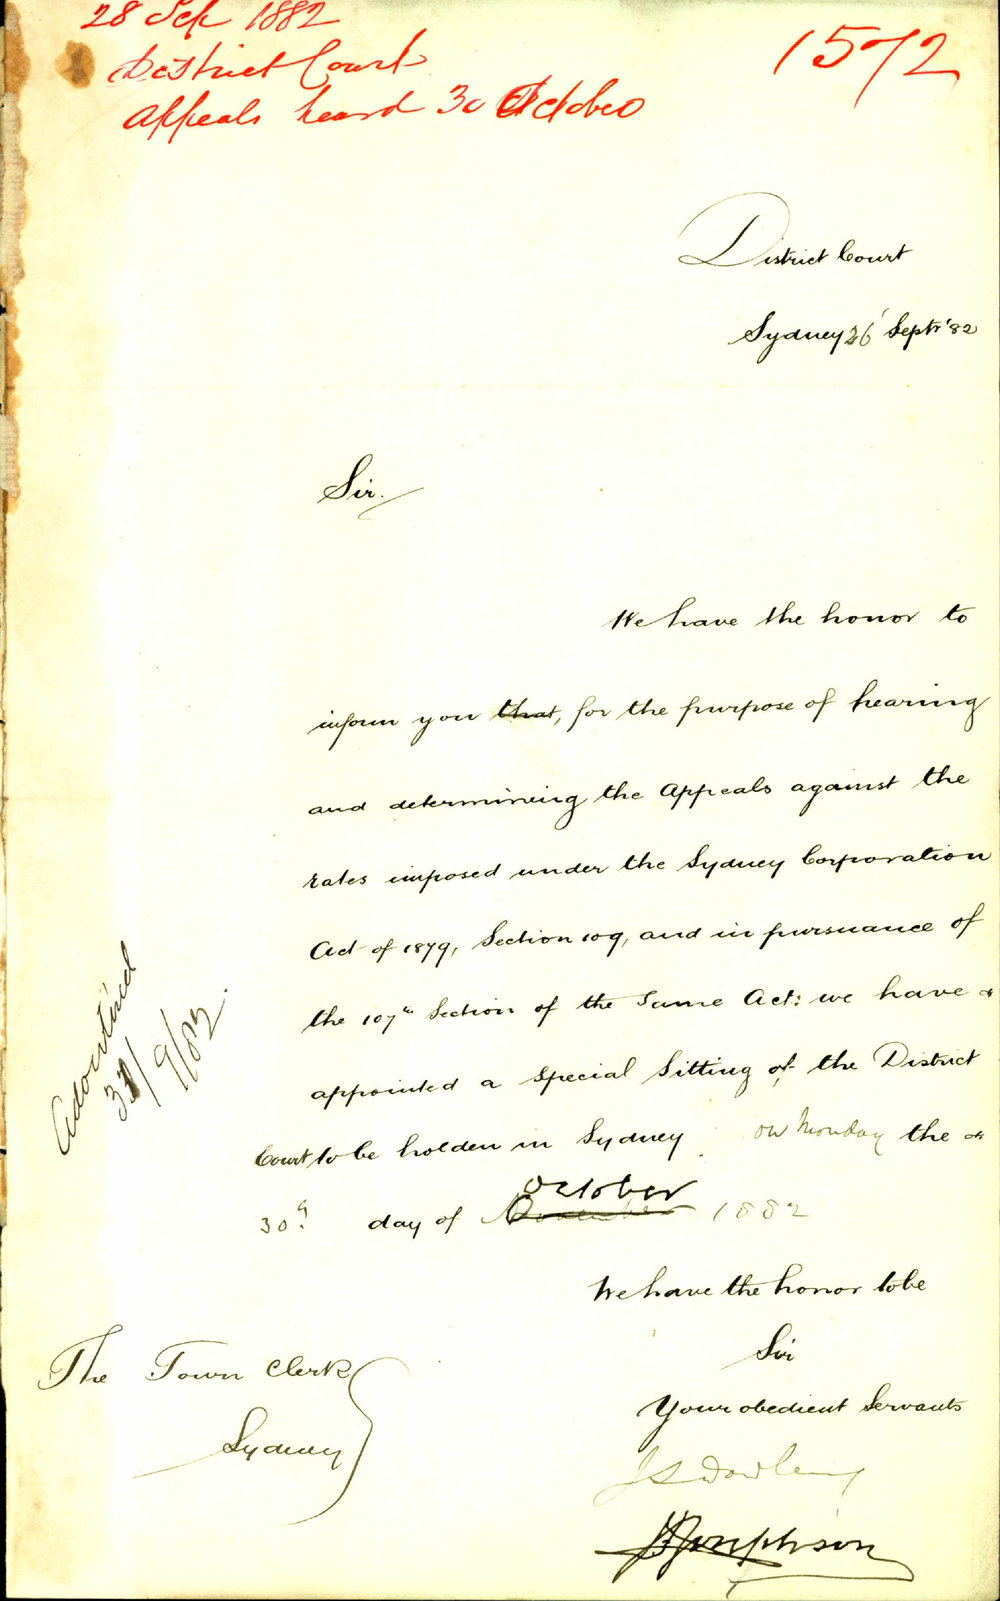 28 Sep 1882
District Court
Appeals heard 30 October
1572
District Court
Sydney 26' Septr '82
Sir.
We have the honor to
inform you that, for the purpose of hearing
and determining the Appeals against the
rates imposed under the Sydney Corporation
Act of 1879, Section 109, and in pursuance of
the 107th Section of the Same Act: we have
appointed a Special Sitting of the District
Court to be holden in Sydney on Monday the
30th day of November October 1882
We have the honor to be
Sir
Your obedient Servants
Dowling
Josephson
The Town Clerk
Sydney